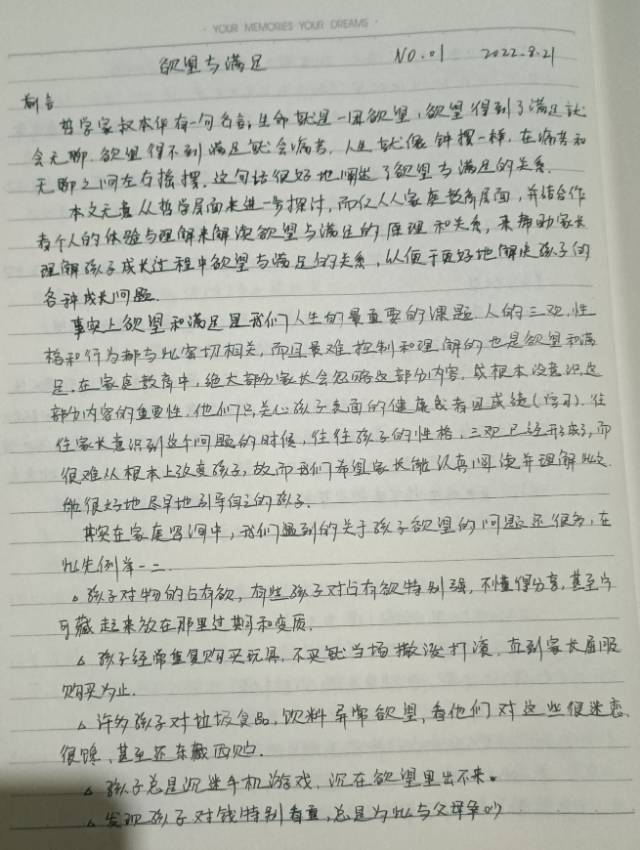 · YOUR MEMORIES YOUR DREAMS ·
欲望与满足 NO.01 2022.8.21
前言
哲学家叔本华有一句名言,生命就是一团欲望,欲望得到了满足就
会无聊.欲望得不到满足就会痛苦.人生就像钟摆一样.在痛苦和
无聊之间左右摇摆.这句话很好地阐述了欲望与满足的关系.
本文无意从哲学层面来进一步探讨,而仅从家庭教育层面,并结合作
者个人的体验与理解来解读欲望与满足的原理和关系,来帮助家长
理解孩子成长过程中欲望与满足的关系,以便于更好地解决孩子的
各种成长问题.
事实上欲望和满足是我们人生的最重要的课题.人的三观.性
格和行为都与此密切相关,而且最难控制和理解的也是欲望和满
足.在家庭教育中,绝大部分家长会忽略这部分内容.或根本没意识这
部分内容的重要性.他们只关心孩子表面的健康或者是成绩(学习).往
往家长意识到这个问题的时候,往往孩子的性格,三观已经形成了,而
很难从根本上改变孩子,故而我们希望家长能认真阅读并理解此文.
能很好地尽早地引导自己的孩子.
其实在家庭咨询中,我们遇到的关于孩子欲望的问题还很多,在
此先例举一二.
。孩子对物的占有欲,有些孩子对占有欲特别强,不懂得分享,甚至宁
可藏起来放在那里过期和变质.
△ 孩子经常重复购买玩具,不买就当场撒泼打滚.直到家长屈服
购买为止.
△ 许多孩子对垃圾食品,饮料异常欲望,看他们对这些很迷恋.
很馋,甚至还东藏西购.
△ 孩子总是沉迷手机游戏,沉在欲望里出不来。
△ 发现孩子对钱特别看重,总是为此与父母争吵